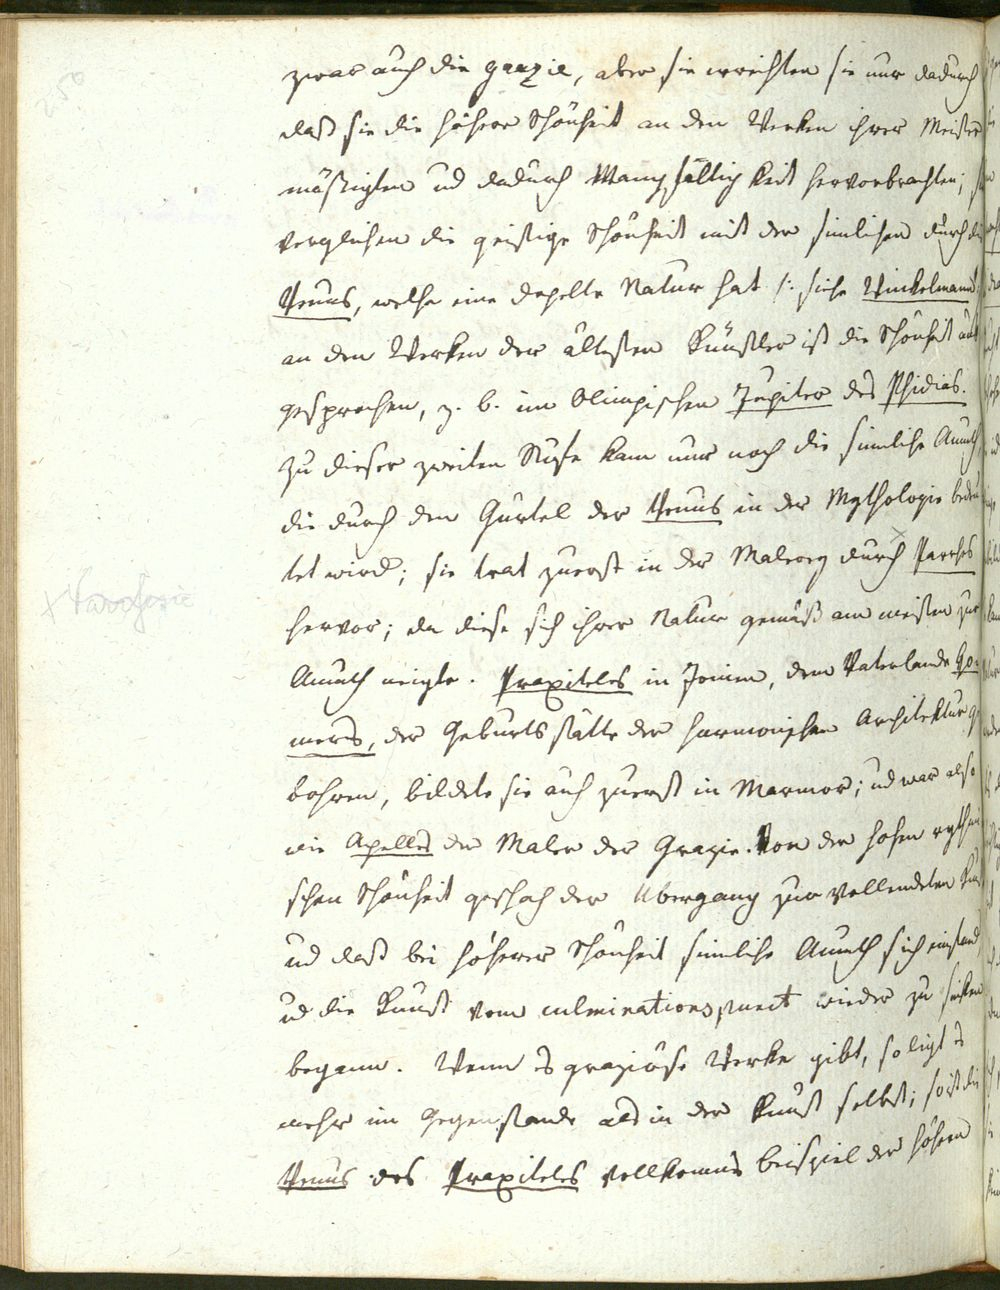 zwar auch die grazie, aber sie erreichten sie nur dadurch
daß sie die höhere Schönheit an den Werken ihrer Meister
mäßigten und dadurch Mannigfaltigkeit hervorbrachten;
verglichen die geistige Schönheit mit der sinlichen durch die
Venus, welche eine dopelte Natur hat /: siehe Winkelmann
an den Werken der ältesten Künstler ist die Schönheit aus
gesprochen, z. b. im Olimpischen Jupiter des Phidias.
Zu dieser zweiten Stufe kam nur noch die sinnliche Anmuth,
die durch den Gürtel der Venus in der Mythologie bedeu
tet wird; sie trat zuerst in der Malerey durch Parrhes
hervor; da diese sich ihrer Natur gemäß am meisten zur
Anmuth neigte. Praxiteles in Jonien, dem Vaterlande Ho-
mers, der Geburtsstätte der harmonischen Architektur ge
bohren, bildete sie auch zuerst in Marmor; ud war also
wie Apelles der Maler der Grazie. Von der hohen rythmi
schen Schönheit geschah der Übergang zur vollendeten Kun
ud daß bei höherer Schönheit sinnliche Anmuth sich einfand,
ud die Kunst vom culminationspunct wieder zu sinken
begann. Wenn es graziöse Werke gibt, so ligt es
mehr im Gegenstande als in der Kunst selbst; so ist die
Venus des Praxiteles vollkomnes beispiel der höhern
250